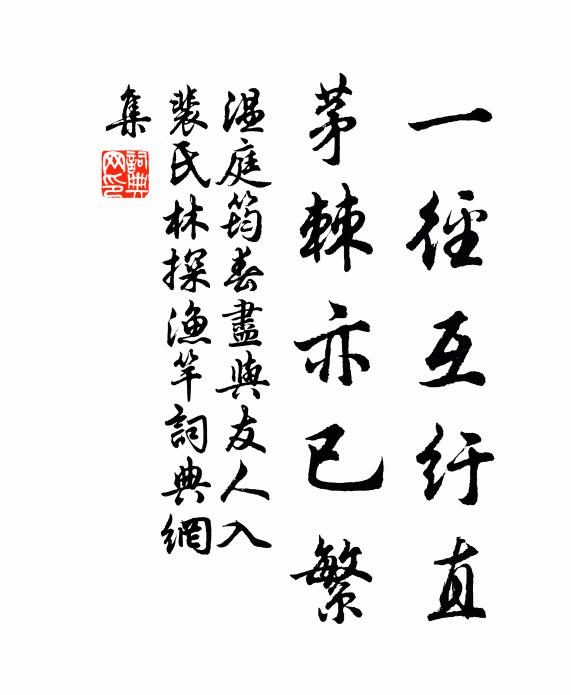 一徑互紆直
茅棘亦已繁
溫庭筠春盡與友人入
裴氏林探漁竿詞典網
集
詞典
网印